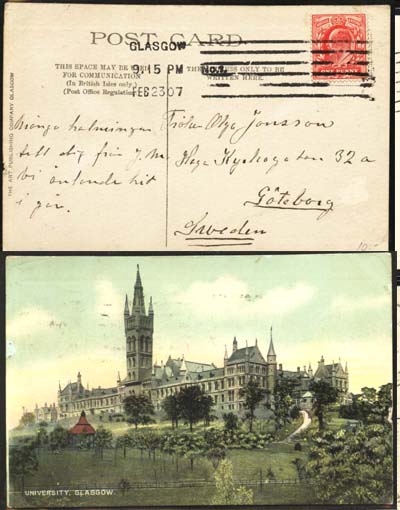 POST CARD.
GLASGOW
9.15 PM No.1.
FEB 23 07
THIS SPACE MAY BE USED
FOR COMMUNICATION
(In British Isles only.)
(Post Office Regulation)
THE ADDRESS ONLY TO BE
WRITTEN HERE.
ONE PENNY
THE ART PUBLISHING COMPANY GLASGOW
Många helsningar
till dig från J. M.
Vi anlände hit
i går.
Fröken Olga Jonsson
Haga Kyrkogatan 32 a
Göteborg
Sweden
10-
UNIVERSITY, GLASGOW.